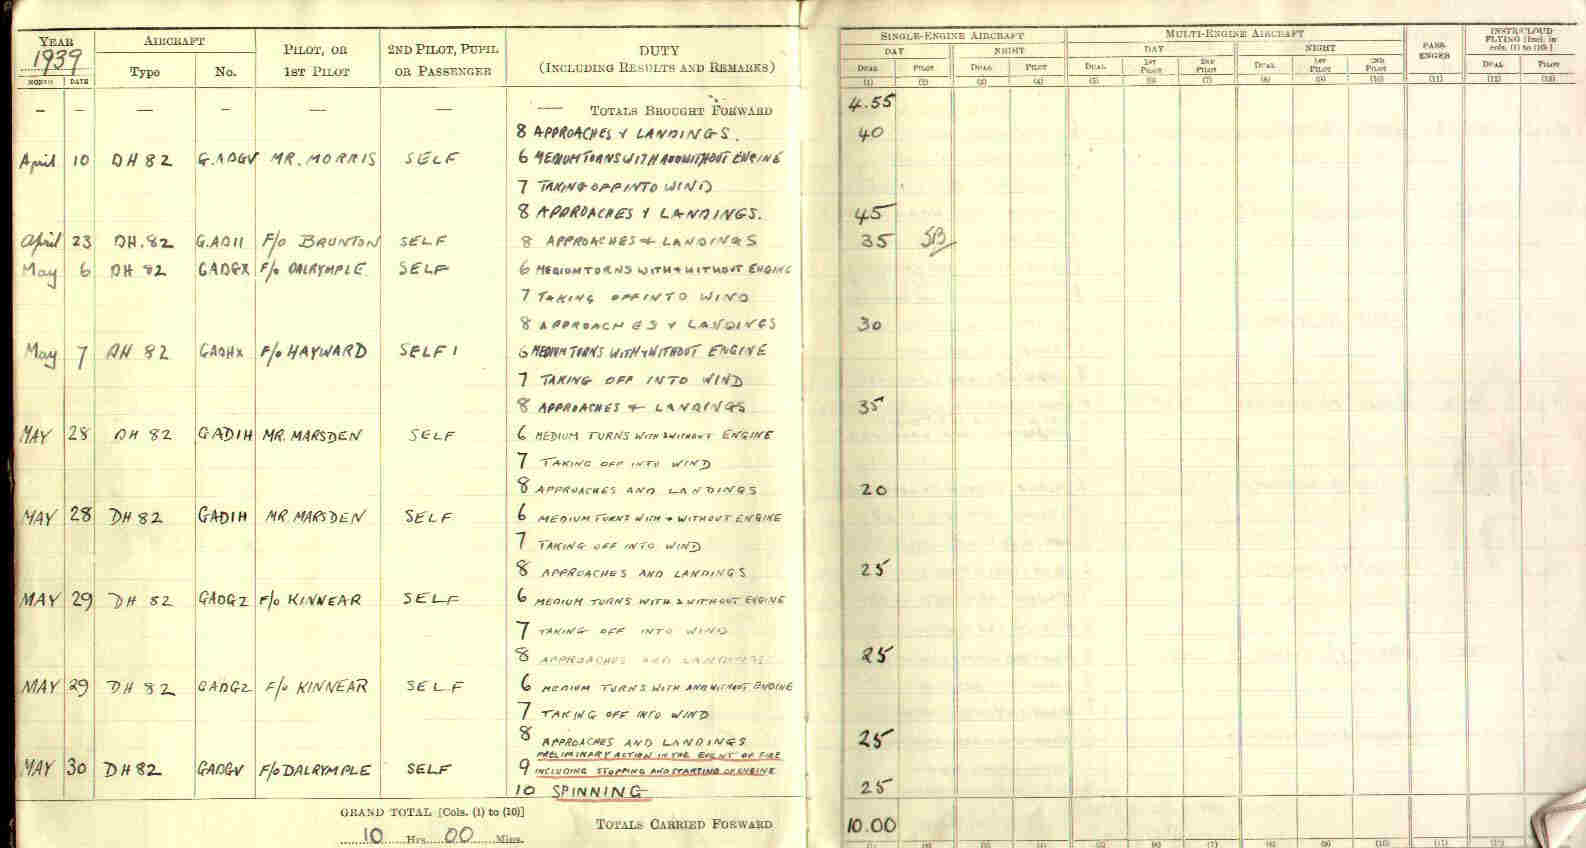 YEAR 1939 AIRCRAFT PILOT, OR 1ST PILOT 2ND PILOT, PUPIL OR PASSENGER DUTY (INCLUDING RESULTS AND REMARKS) SINGLE-ENGINE AIRCRAFT MULTI-ENGINE AIRCRAFT PASSENGER INSTR/CLOUD FLYING [Incl. in cols. (1) to (10)]
MONTH DATE Type No. DAY NIGHT DAY NIGHT
DUAL PILOT DUAL PILOT DUAL 1ST PILOT 2ND PILOT DUAL 1ST PILOT 2ND PILOT DUAL PILOT
(1) (2) (3) (4) (5) (6) (7) (8) (9) (10) (11) (12) (13)
— — — — — — — TOTALS BROUGHT FORWARD 4.55
8 APPROACHES & LANDINGS. 40
April 10 DH 82 G.ADGV MR. MORRIS SELF 6 MEDIUM TURNS WITH AND WITHOUT ENGINE
7 TAKING OFF INTO WIND
8 APPROACHES & LANDINGS. 45
April 23 DH.82 G.ADII F/o BRUNTON SELF 8 APPROACHES & LANDINGS 35
May 6 DH 82 GADGX F/o DALRYMPLE SELF 6 MEDIUM TURNS WITH & WITHOUT ENGINE
7 TAKING OFF INTO WIND
8 APPROACHES & LANDINGS 30
May 7 DH 82 GADHX F/o HAYWARD SELF 1 6 MEDIUM TURNS WITH & WITHOUT ENGINE
7 TAKING OFF INTO WIND
8 APPROACHES & LANDINGS 35
MAY 28 DH 82 GADIH MR. MARSDEN SELF 6 MEDIUM TURNS WITH & WITHOUT ENGINE
7 TAKING OFF INTO WIND
8 APPROACHES AND LANDINGS 20
MAY 28 DH 82 GADIH MR. MARSDEN SELF 6 MEDIUM TURNS WITH & WITHOUT ENGINE
7 TAKING OFF INTO WIND
8 APPROACHES AND LANDINGS 25
MAY 29 DH 82 GADGZ F/o KINNEAR SELF 6 MEDIUM TURNS WITH & WITHOUT ENGINE
7 TAKING OFF INTO WIND
8 APPROACHES AND LANDINGS 25
MAY 29 DH 82 GADGZ F/o KINNEAR SELF 6 MEDIUM TURNS WITH AND WITHOUT ENGINE
7 TAKING OFF INTO WIND
8 APPROACHES AND LANDINGS 25
PRELIMINARY ACTION IN THE EVENT OF FIRE
MAY 30 DH 82 GADGV F/o DALRYMPLE SELF 9 INCLUDING STOPPING AND STARTING OF ENGINE
10 SPINNING 25
GRAND TOTAL [Cols. (1) to (10)] TOTALS CARRIED FORWARD 10.00
10 Hrs. 00 Mins.